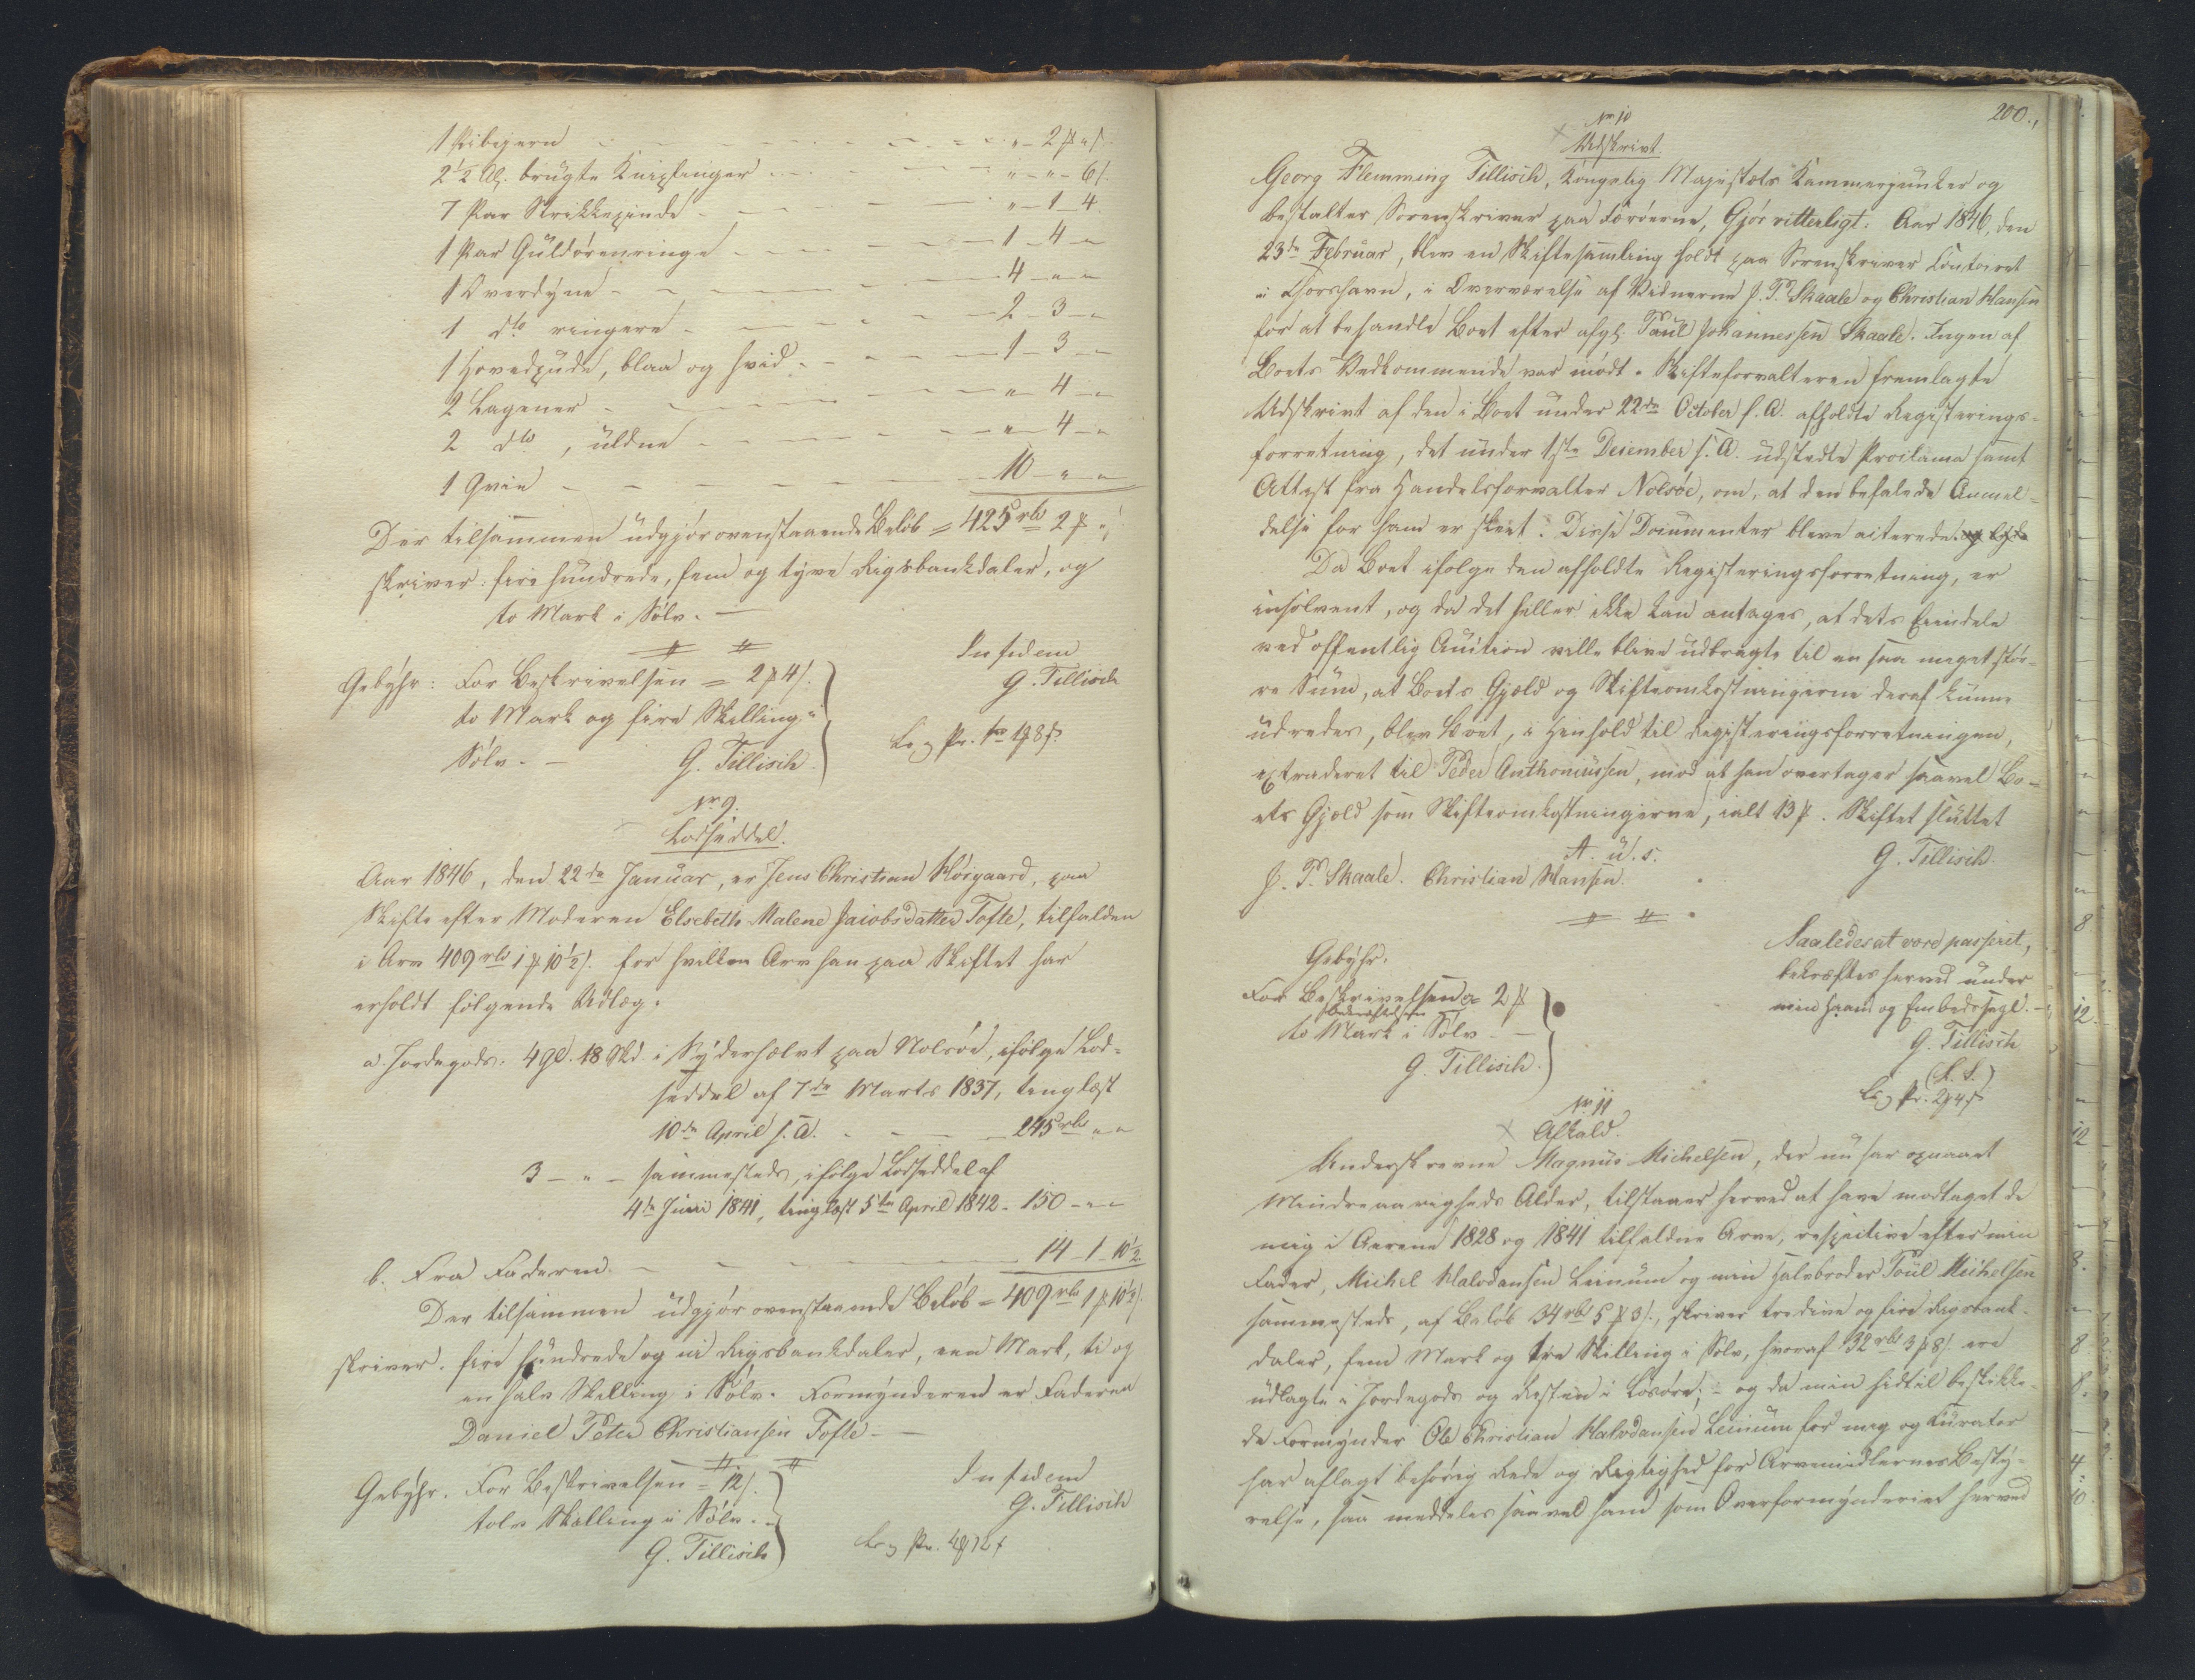 1 Ribejern - - - - - - - - " - 2 ₰ " ſ.
2 1/2 Al. brugte Kniplinger - - - - - " - " - 6 ſ.
7 Par Strikkepinde - - - - - " - 1 - 4
1 Par Guldørenringe - - - - - 1 - 4 - "
1 Overdyne - - - - - 4 - " - "
1 dto ringere - - - - - 2 - 3 - "
1 Hovedpude, blaa og hvid - - - - 1 - 3 - "
2 Lagener - - - - - " - 4 - "
2 dto, uldne - - - - - " - 4 - "
1 Qvie - - - - - 10 - " - "
Der tilsammen udgjør ovenstaaende Beløb = 425 rbd 2 ₰ " ſ
skriver: fire hundrede, fem og tyve Rigsbankdaler, og
to Mark i Sølv. -
In fidem
Gebyhr: For Beskrivelsen = 2 ₰ 4 ſ.
G. Tillisch
to Mark og fire Skilling i
Sølv. - G. Tillisch.
No 9.
Lodseddel.
Aar 1846, den 22de Januar, er Jens Christian Højgaard, paa
Skifte efter Moderen Elsebeth Malene Jacobsdatter Tofte, tilfalden
i Arv 409 rbd 1 ₰ 10 1/2 ſ. for hvilken Arv han paa Skiftet har
erholdt følgende Udlæg:
a. Jordegods. 4 Gl. 18 Skd. i Syderhalvt paa Nolsøe, ifølge Lod-
seddel af 7de Marts 1837, tinglæst
10de April s. A. - - - - 245 rbd " "
3 - " - sammesteds, ifølge Lodseddel af
4de Juni 1841, tinglæst 5te April 1842 - 150 - " - "
b. Fra Faderen - - - - - 14 - 1 - 10 1/2
Der tilsammen udgjør ovenstaaende Beløb = 409 rbd 1 ₰ 10 1/2 ſ.
skriver: fire hundrede og ni Rigsbankdaler, een Mark, ti og
en halv Skilling i Sølv. Formynderen er Faderen
Daniel Peter Christiansen Tofte. -
In fidem
Gebyhr. For Beskrivelsen = 12 ſ.
G. Tillisch
tolv Skilling i Sølv. -
G. Tillisch
200.,
No 10
Udskrivt.
Georg Flemming Tillisch, Kongelig Majestæts Kammerjunker og
bestalter Sorenskriver paa Færøerne, Gjør vitterligt: Aar 1846, den
23de Februar, blev en Skiftesamling holdt paa Sorenskriver Contoiret
i Thorshavn, i Overværelse af Vidnerne J. P. Skaale og Christian Hansen
for at behandle Boet efter afgl. Poul Johannessen Skaale. Ingen af
Boets Vedkommende var mødt. Skifteforvalteren fremlagte
Udskrivt af den i Boet under 22de October f. A. afholdte Registerings-
forretning, det under 1ste December f. A. udstedte Proclama samt
Attest fra Handelsforvalter Nolsøe, om, at den befalede Anmel-
delse for ham er skeet. Disse Documenter bleve aciterede.
Da Boet ifølge den afholdte Registeringsforretning, er
insolvent, og da det heller ikke kan antages, at dets Eiendele
ved offentlig Auction ville blive udbragte til en saa meget stør-
re Sum, at Boets Gjæld og Skifteomkostningerne deraf kunne
udredes, blev Boet, i Henhold til Registeringsforretningen,
extraderet til Peder Anthoniussen, mod at han overtager saavel Bo-
ets Gjæld som Skifteomkostningerne, ialt 13 ₰. Skiftet sluttet
A. u. s.
G. Tillisch.
J. P. Skaale. Christian Hansen.
Saaledes at være passeret,
bekræftes herved under
min Haand og Embedssegl. -
G. Tillisch
(L. S.)
Gebyhr.
For Beskrivelsen = 2 ₰
to Mark i Sølv. -
G. Tillisch.
No 11
Afkald.
Underskrevne Magnus Michelsen, der nu har opnaaet
Mindreaarigheds Alder, tilstaaer herved at have modtaget de
mig i Aarene 1828 og 1841 tilfaldne Arve, respective efter min
Fader, Michel Halvdansen Leinum og min Halvbroder Poul Michelsen
sammesteds, af Beløb 34 rbd 5 ₰ 3 ſ., skriver tredive og fire Rigsbank-
daler, fem Mark og tre Skilling i Sølv, hvoraf 32 rbd 3 ₰ 8 ſ. ere
udlagte i Jordegods og Resten i Løsøre; - og da min hidtil beskikke-
de Formynder Ole Christian Halvdansen Leinum for mig og Curator
har aflagt behørig Rede og Rigtighed for Arvemidlernes Besty-
relse, saa meddeles saavel ham som Overformynderiet herved